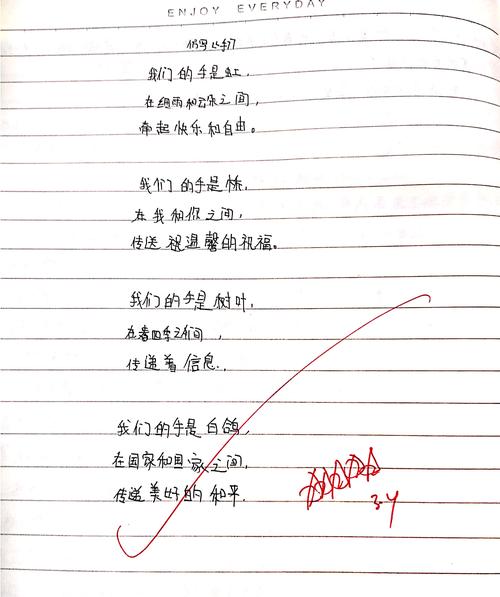 ENJOY EVERYDAY
仿写
我们的手是虹,
在细雨和云朵之间,
牵起快乐和自由。
我们的手是桥,
在我和你之间,
传送温馨的祝福。
我们的手是树叶,
在春四季之间,
传递着信息.
我们的手是白鸽,
在国家和国家之间,
传递美好的和平.
3.4